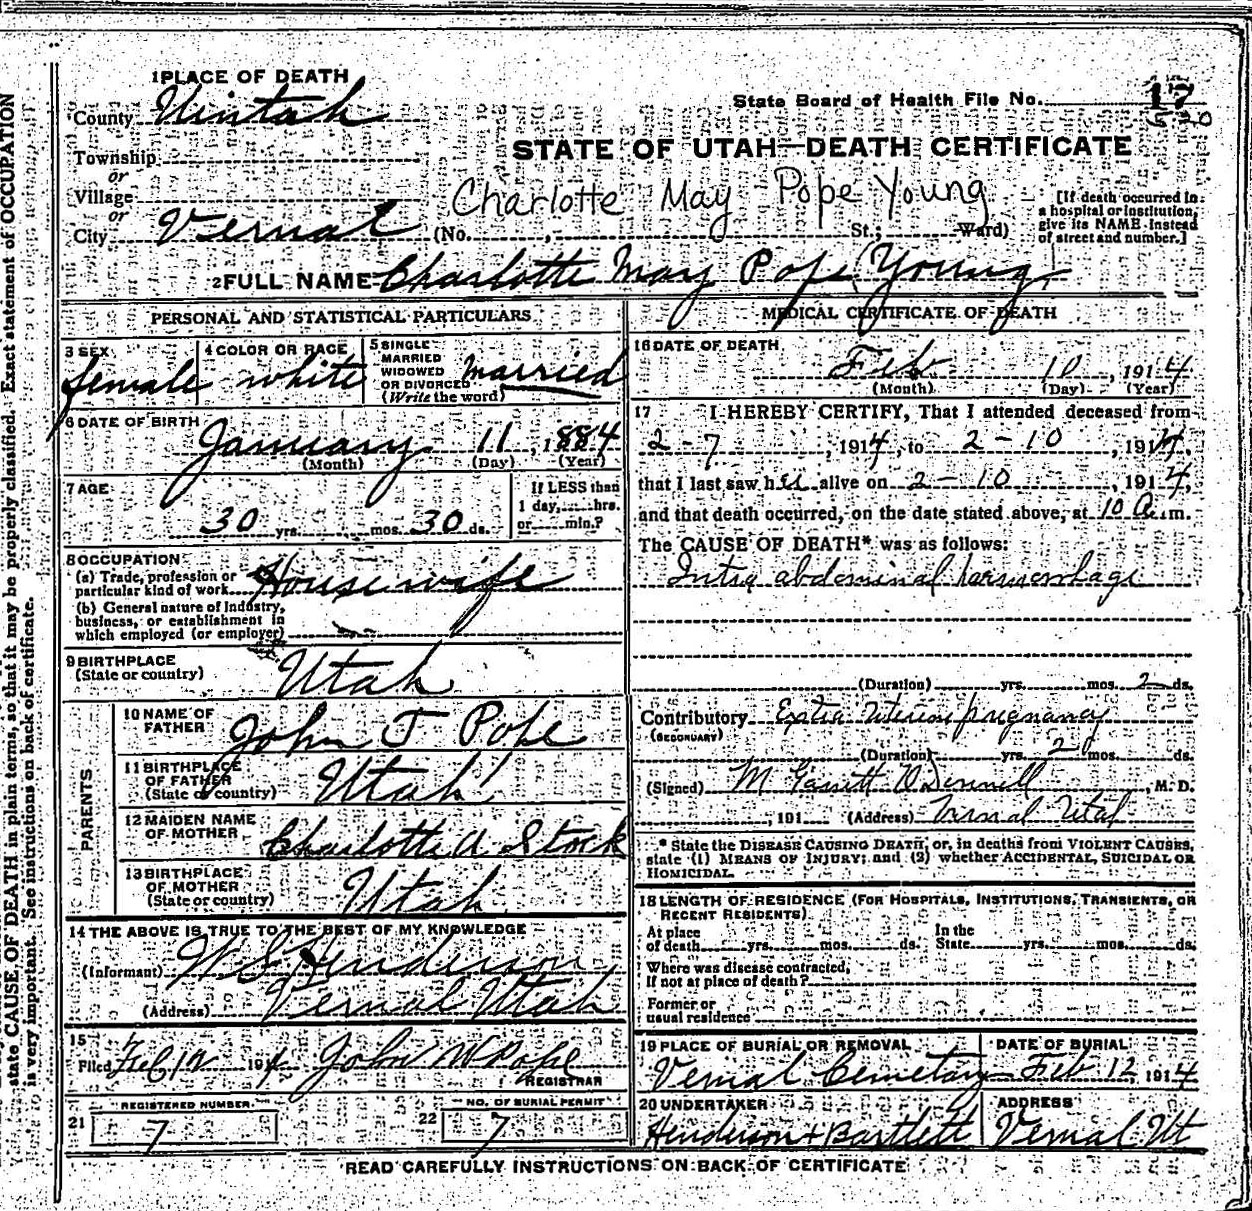 1 PLACE OF DEATH
County Uintah
Township
or
Village
or
City Vernal
(No. , St.; Ward)
State Board of Health File No. 17
STATE OF UTAH—DEATH CERTIFICATE
Charlotte May Pope Young
[If death occurred in
a hospital or institution,
give its NAME instead
of street and number.]
2 FULL NAME Charlotte May Pope Young
PERSONAL AND STATISTICAL PARTICULARS
3 SEX female
4 COLOR OR RACE white
5 SINGLE
MARRIED
WIDOWED
OR DIVORCED
(Write the word)
Married
6 DATE OF BIRTH
January 11, 1884
(Month) (Day) (Year)
7 AGE
30 yrs. mos. 30 ds.
If LESS than
1 day, hrs.
or min.?
8 OCCUPATION
(a) Trade, profession or
particular kind of work Housewife
(b) General nature of Industry,
business, or establishment in
which employed (or employer)
9 BIRTHPLACE
(State or country) Utah
PARENTS
10 NAME OF
FATHER John T Pope
11 BIRTHPLACE
OF FATHER
(State or country) Utah
12 MAIDEN NAME
OF MOTHER Charlotte A Stock
13 BIRTHPLACE
OF MOTHER
(State or country) Utah
14 THE ABOVE IS TRUE TO THE BEST OF MY KNOWLEDGE
(Informant) W S Henderson
(Address) Vernal Utah
15
Filed Feb 12 1914 John W Pope
REGISTRAR
21 REGISTERED NUMBER
7
22 NO. OF BURIAL PERMIT
7
MEDICAL CERTIFICATE OF DEATH
16 DATE OF DEATH
Feb 10, 1914
(Month) (Day) (Year)
17 I HEREBY CERTIFY, That I attended deceased from
2-7, 1914, to 2-10, 1914,
that I last saw her alive on 2-10, 1914,
and that death occurred, on the date stated above, at 10 A.m.
The CAUSE OF DEATH* was as follows:
Intra abdominal haemorrhage
(Duration) yrs. mos. 2 ds.
Contributory Extra Uterine pregnancy
(SECONDARY)
(Duration) yrs. 2 mos. ds.
(Signed) M Garrett O'Donnell, M. D.
, 191 (Address) Vernal Utah
* State the DISEASE CAUSING DEATH, or, in deaths from VIOLENT CAUSES,
state (1) MEANS OF INJURY; and (2) whether ACCIDENTAL, SUICIDAL OR
HOMICIDAL.
18 LENGTH OF RESIDENCE (FOR HOSPITALS, INSTITUTIONS, TRANSIENTS, OR
RECENT RESIDENTS)
At place
of death yrs. mos. ds.
In the
State yrs. mos. ds.
Where was disease contracted,
If not at place of death?
Former or
usual residence
19 PLACE OF BURIAL OR REMOVAL
Vernal Cemetary
DATE OF BURIAL
Feb 12, 1914
20 UNDERTAKER
Henderson + Bartlett
ADDRESS
Vernal Ut
READ CAREFULLY INSTRUCTIONS ON BACK OF CERTIFICATE
state CAUSE OF DEATH in plain terms, so that it may be properly classified. Exact statement of OCCUPATION
is very important. See instructions on back of certificate.